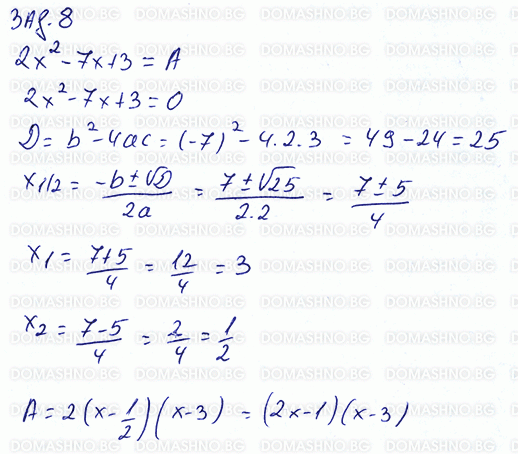 Зад. 8
2x² - 7x + 3 = A
2x² - 7x + 3 = 0
D = b² - 4ac = (-7)² - 4.2.3 = 49 - 24 = 25
x₁/₂ = (-b ± √D)/(2a) = (7 ± √25)/(2.2) = (7 ± 5)/4
x₁ = (7+5)/4 = 12/4 = 3
x₂ = (7-5)/4 = 2/4 = 1/2
A = 2(x - 1/2)(x - 3) = (2x - 1)(x - 3)
DOMASHNO.BG